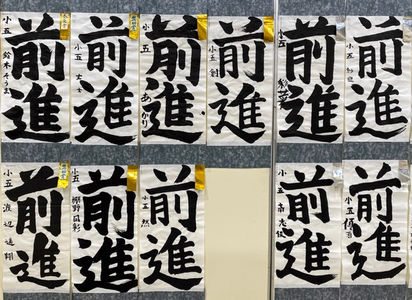 前進
小五
鈴木そうま
前進
小五
前進
小五
あかり
前進
小五
創
前進
小五
前進
小五
前進
小五
渡辺遥翔
前進
小五
前進
小五
然
前進
小五
前進
小五